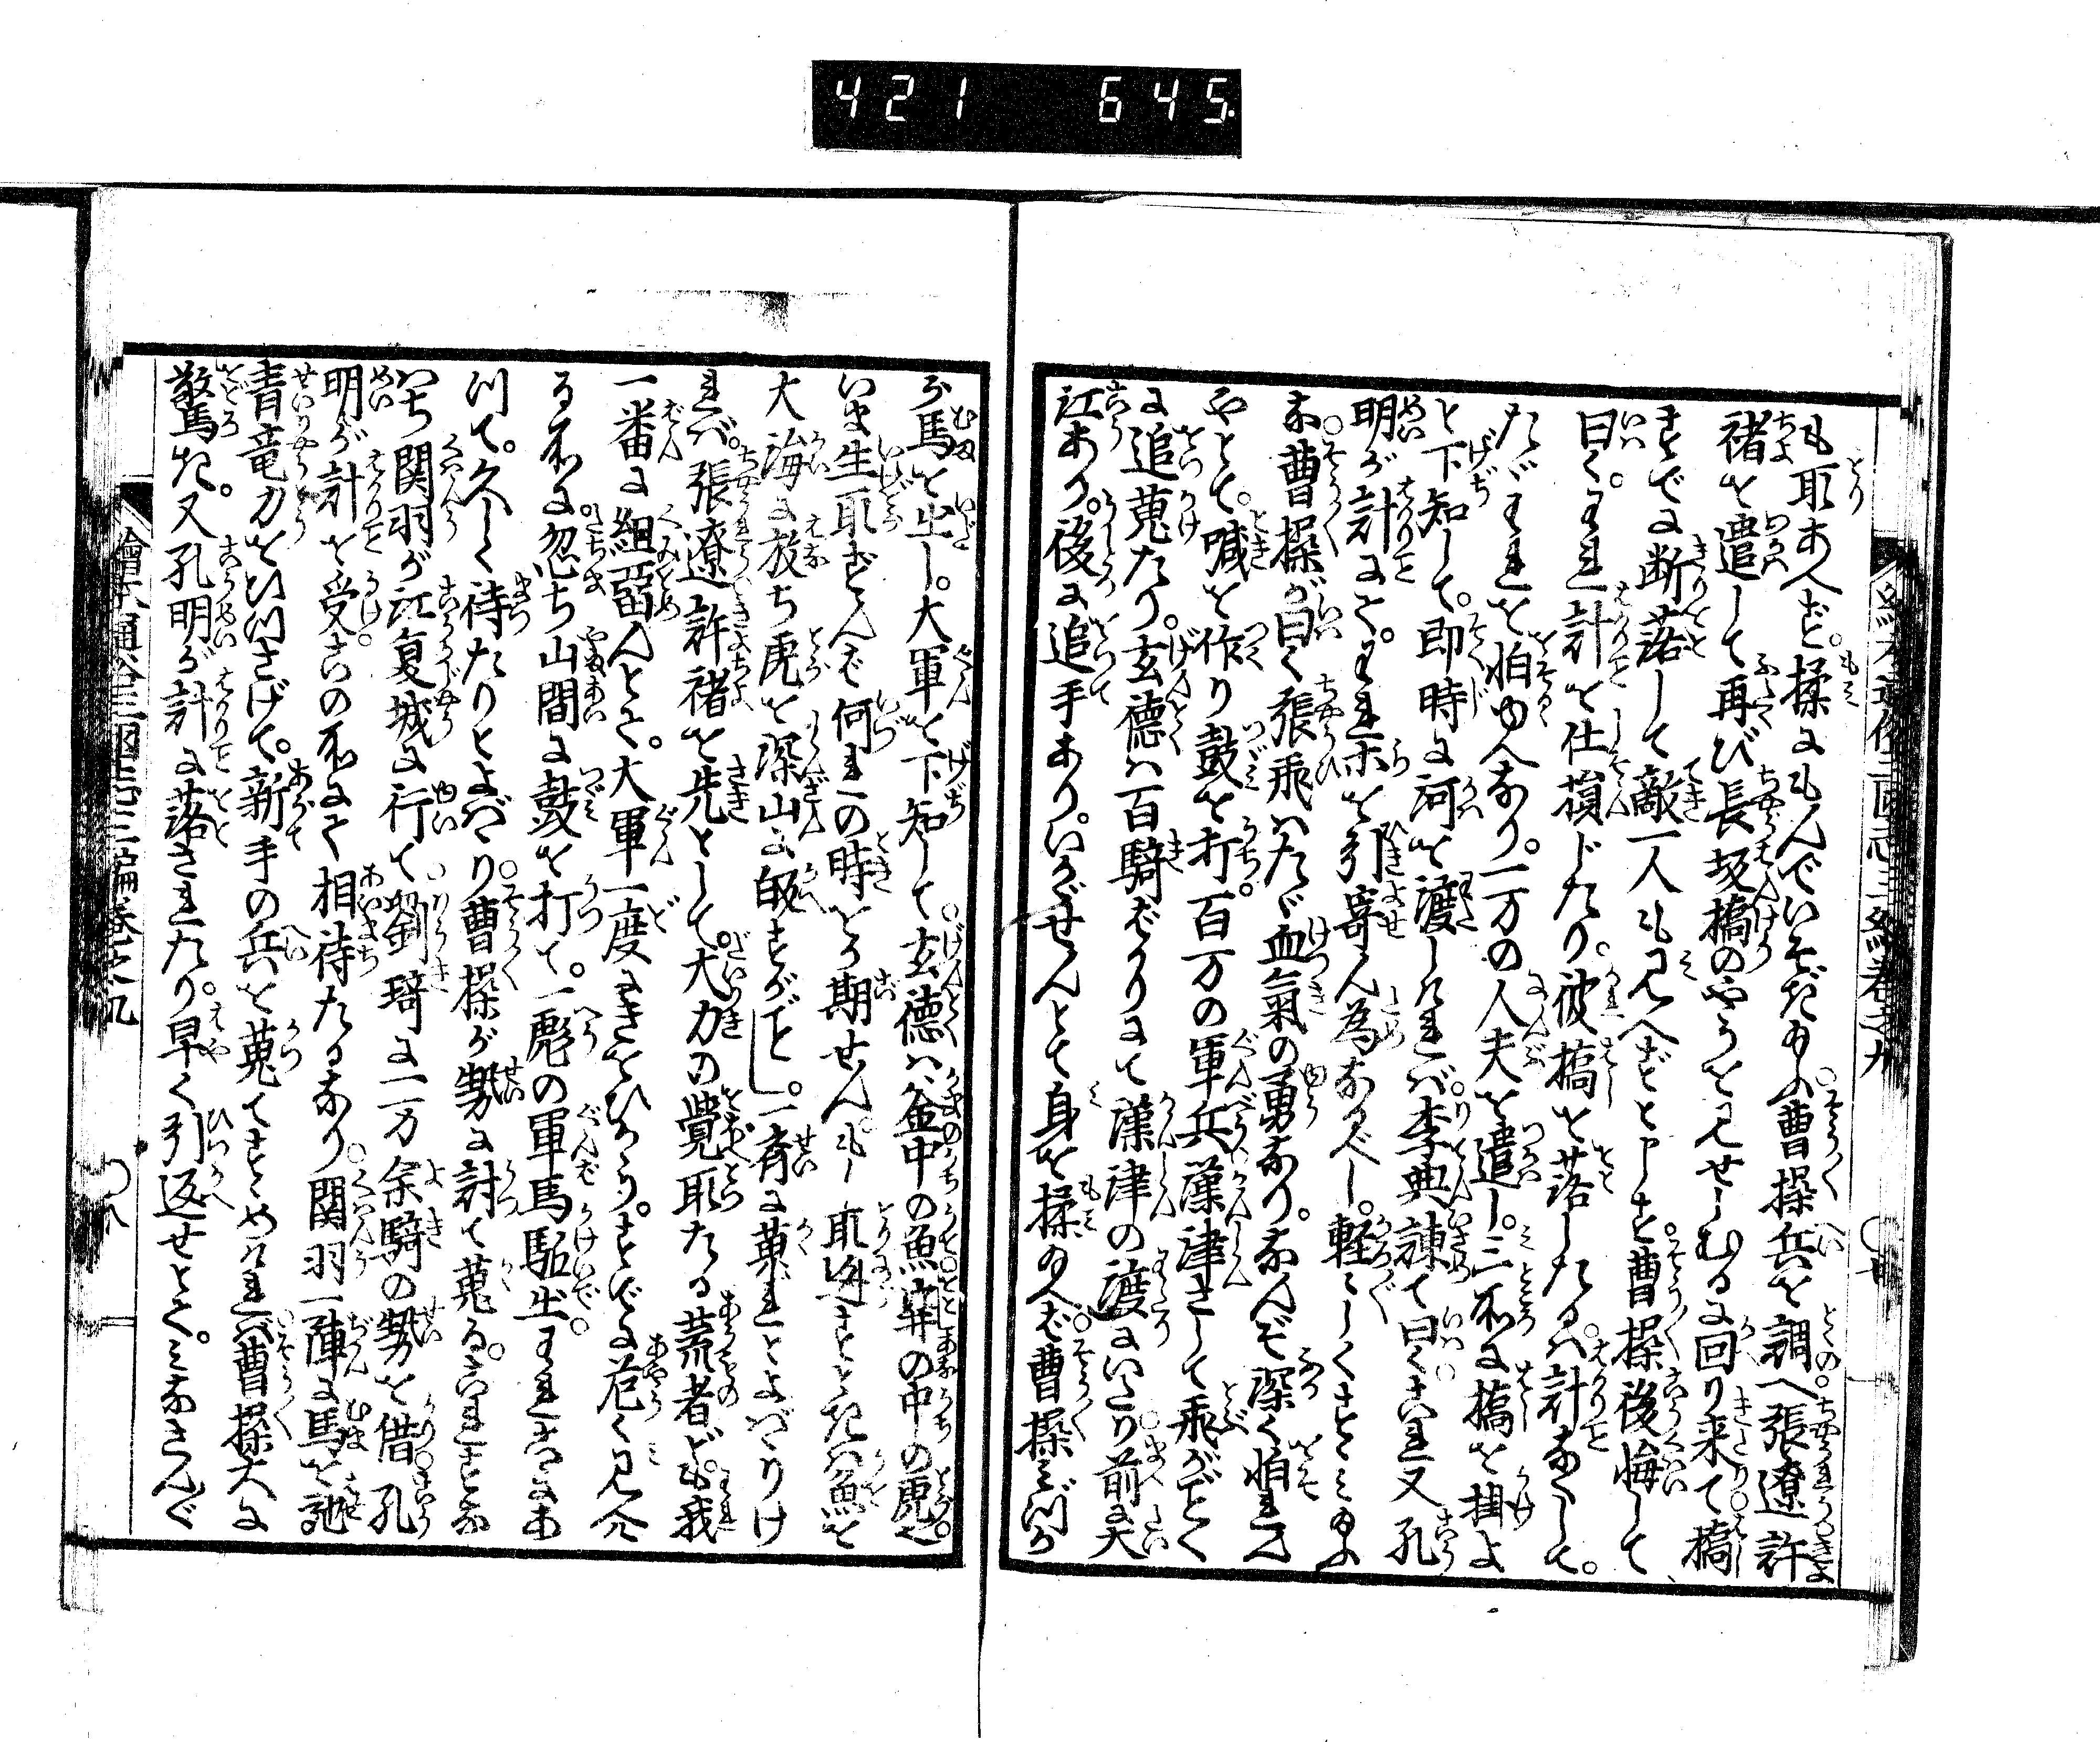 421 645
も取あへず。揉にもんでいそぎ給ふ曹操兵を調へ張遼許
褚を遣して再び長坂橋のやうを見せしむるに回り来て橋
すでに断落して敵一人も見へずと申す曹操後悔して
曰く。われ計を仕損じたり。彼橋を落したるハ計なくして。
たゞわれを怕ゆへなり。一万の人夫を遣し。三所に橋を掛よ
と下知して。即時に河を渡しければ。李典諌て曰くこれ又孔
明が計にて。われらを引寄ん為なるべし。軽〻しくすゝミ給ふ
な曹操が曰く張飛ハたゞ血氣の勇なり。なんぞ深く怕れん
やとて。喊を作り鼓を打。百万の軍兵漢津さして飛がごとく
に追蒐たり。玄徳ハ百騎ばかりにて漢津の渡にいたり前に大
江あり。後に追手あり。いかゞせんとて身を揉給へば。曹操ミづか
ら馬を出し。大軍を下知して玄徳ハ釜中の魚穽の中の虎を
いま生取ずんば何れの時をか期せん。もし取逃すときハ魚を
大海に放ち虎を深山に皈すがごとし。一斉に蒐れとよばハりけ
れバ。張遼許褚を先として。大力の覚取たる荒者ども我
一番に組留んとて。大軍一度にきそひかゝる。すでに危く見へ
る所に。忽ち山間に鼓を打て。一彪の軍馬駈出。われこゝにあ
つて。久しく待たりとよバゝり曹操が勢に討て蒐る。これすな
ハち関羽が江夏城に行て劉琦に一万余騎の勢を借孔
明が計を受この所にて相待たるなり。関羽一陣に馬を馳。
青竜刀をひつさげて。新手の兵を蒐てすゝめけれバ曹操大に
驚き。又孔明が計に落されたり。早く引返せとて。ミなさんぐ
繪本通俗三國志三編巻之九